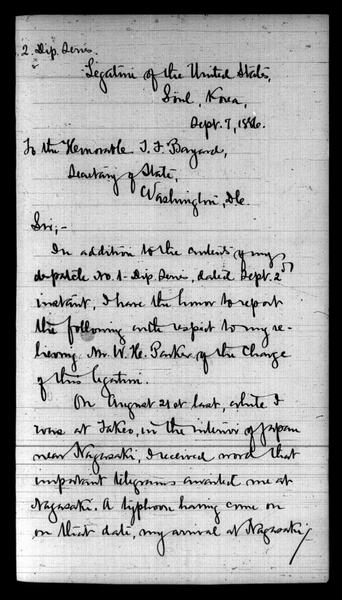 2. Dip. Series.
Legation of the United States,
Söul, Korea,
Sept. 7, 1886.
To the Honorable T. F. Bayard,
Secretary of State,
Washington, D.C.
Sir;-
In addition to the contents of my
dispatch No. 1 - Dip. Series, dated Sept. 2nd
instant, I have the honor to report
the following with respect to my re-
lieving Mr. W. H. Parker of the charge
of this legation.
On August 21st last, while I
was at Takeo, in the interior of Japan
near Nagasaki, I received word that
important telegrams awaited me at
Nagasaki. A typhoon having come on
on that date, my arrival at Nagasaki